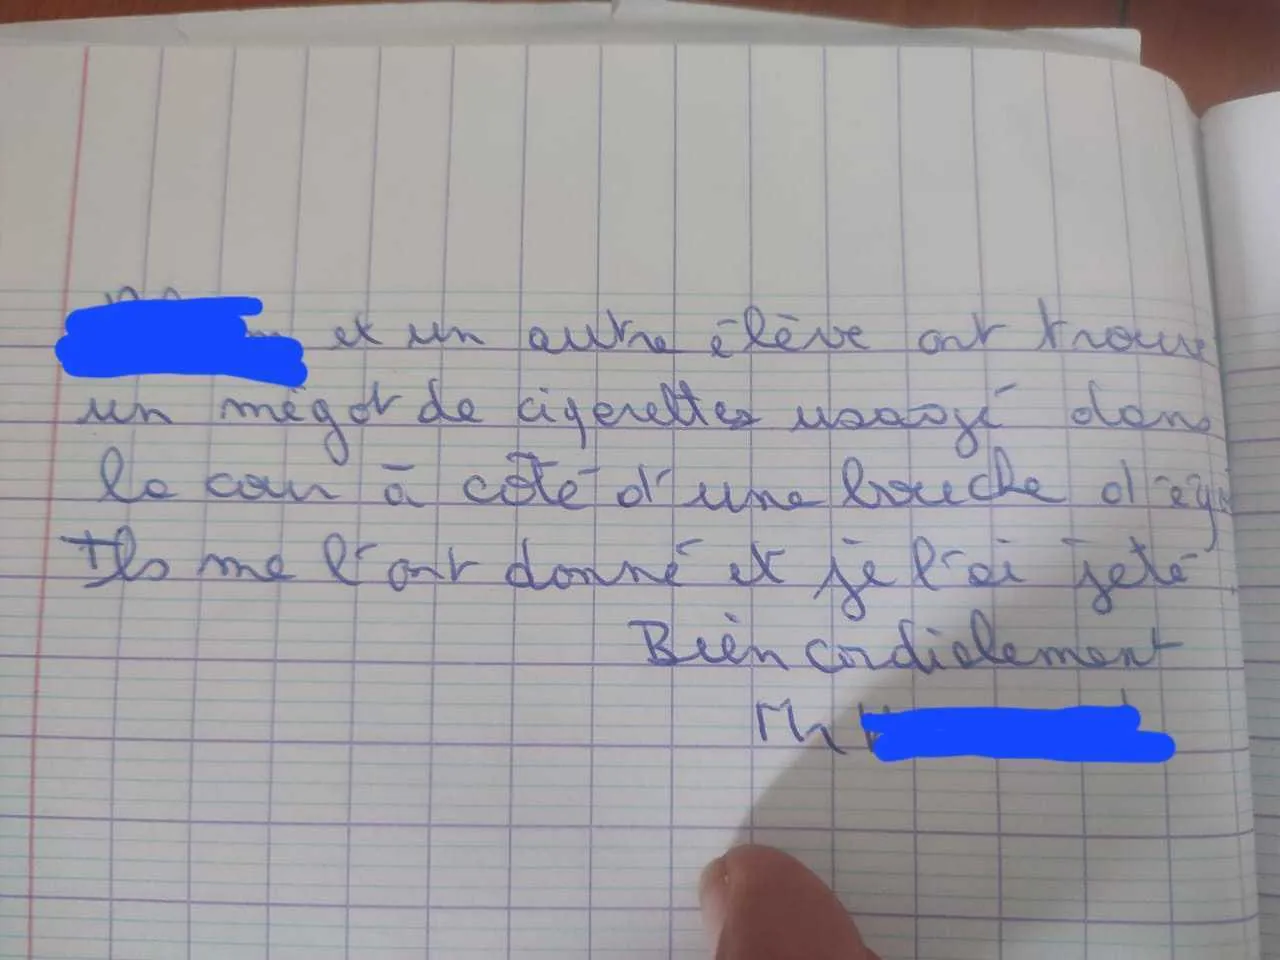 et un autre élève ont trouvé
un mégot de cigerettes usagé dans
la cour à côté d'une bouche d'égo
Ils me l'ont donné et je l'ai jeté
Bien cordialement
Mr